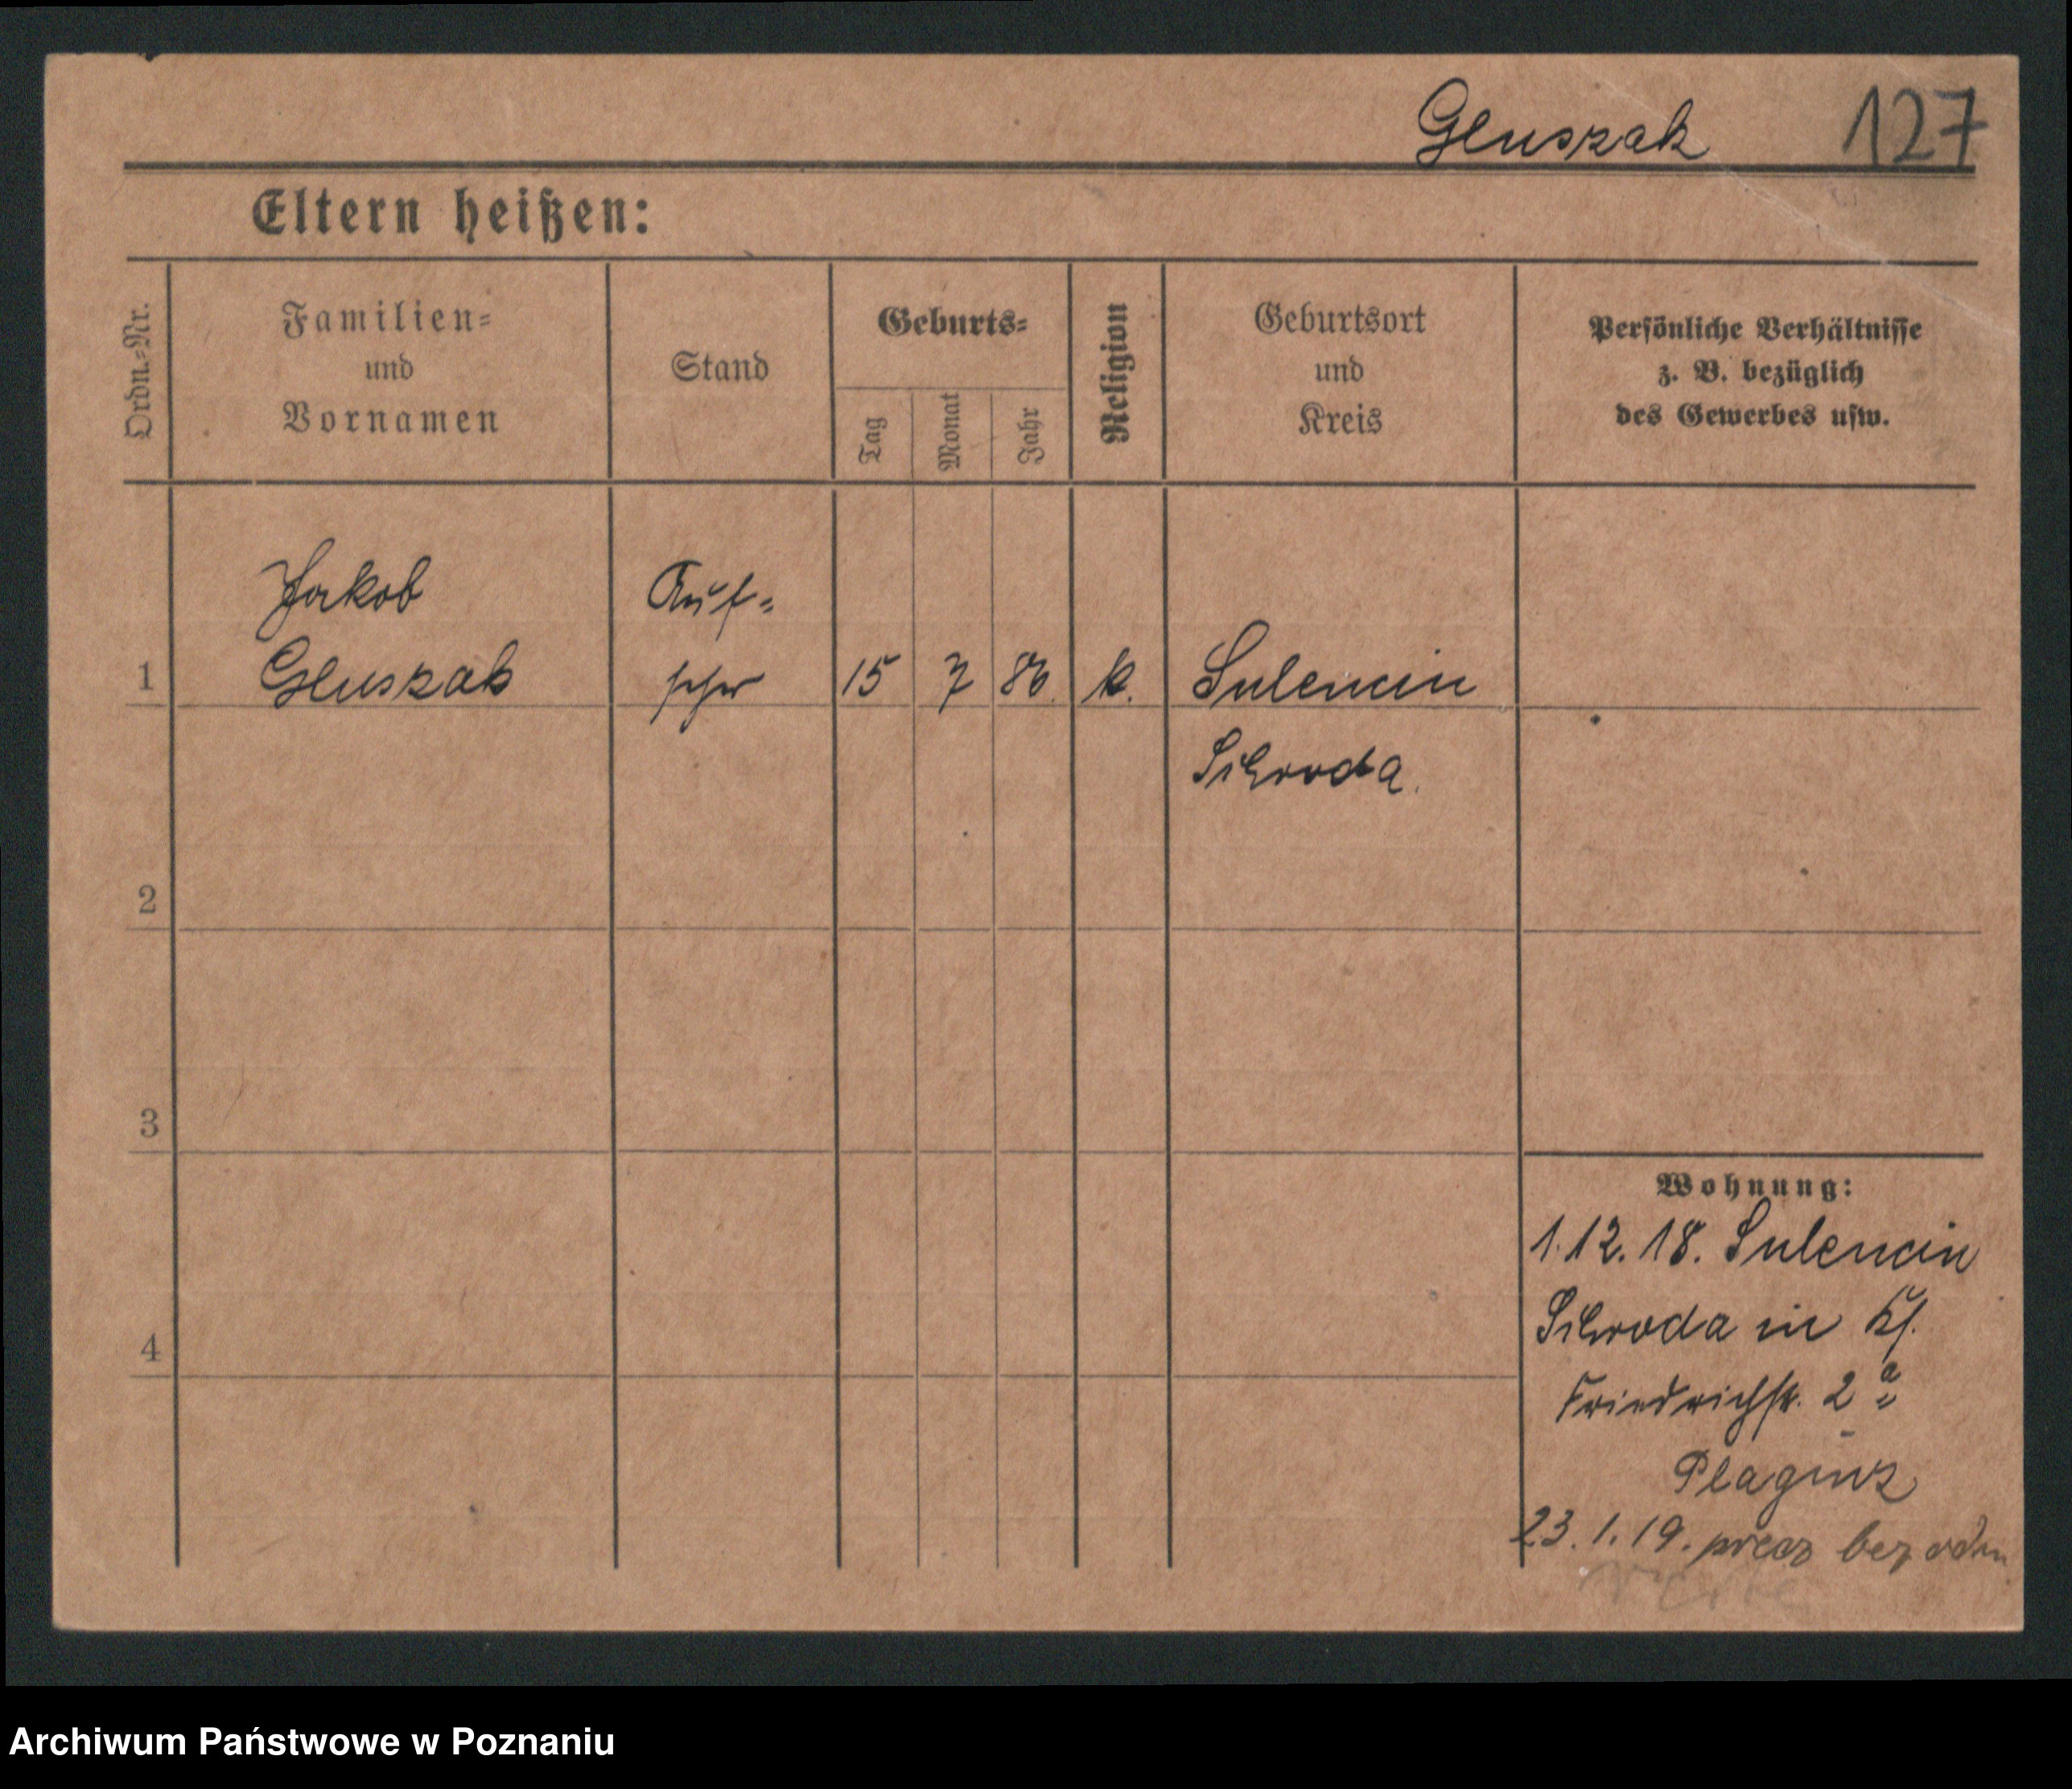 Gluszak 127
Eltern heißen:
Ordn.=Nr.
Familien=
und
Vornamen
Stand
Geburts=
Tag
Monat
Jahr
Religion
Geburtsort
und
Kreis
Persönliche Verhältnisse
z. B. bezüglich
des Gewerbes usw.
Jakob Auf=
1 Gluszak seher 15 7 86. k. Sulencin
Schroda.
2
3
4
Wohnung:
1.12.18. Sulencin
Schroda in
Friedrichstr. 2 a
23.1.19. precz bez odm
Archiwum Państwowe w Poznaniu